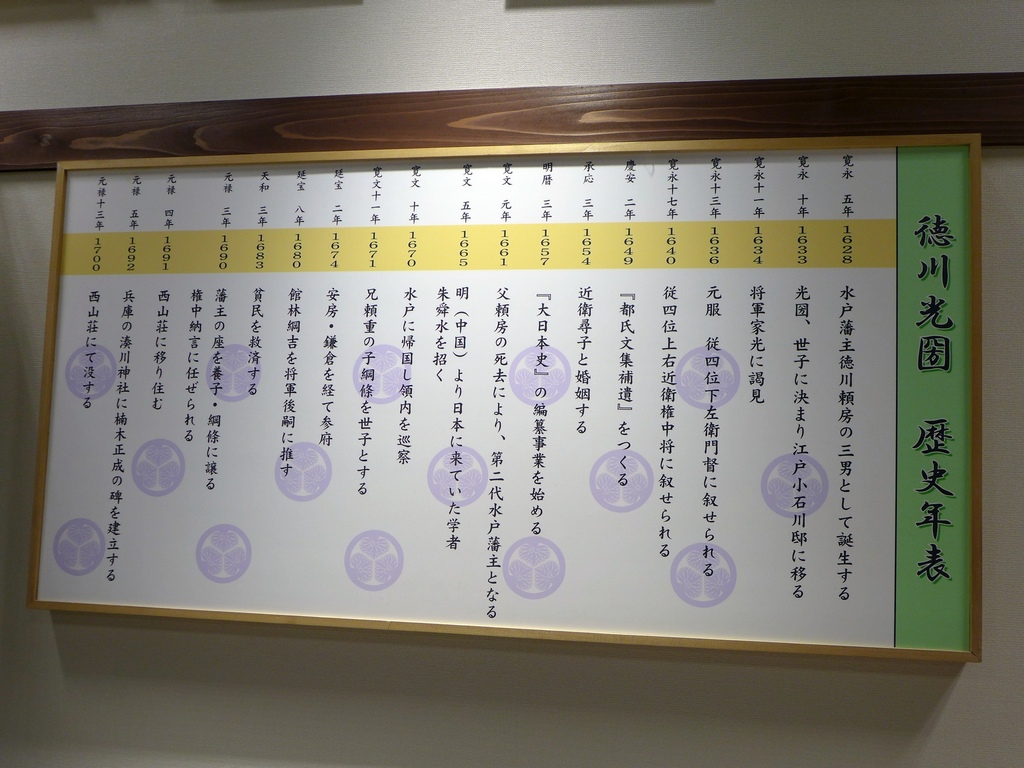 徳川光圀 歴史年表
寛永 五年 1628 水戸藩主徳川頼房の三男として誕生する
寛永 十年 1633 光圀、世子に決まり江戸小石川邸に移る
寛永十一年 1634 将軍家光に謁見
寛永十三年 1636 元服 従四位下左衛門督に叙せられる
寛永十七年 1640 従四位上右近衛権中将に叙せられる
慶安 二年 1649 『都氏文集補遺』をつくる
承応 三年 1654 近衛尋子と婚姻する
明暦 三年 1657 『大日本史』の編纂事業を始める
寛文 元年 1661 父頼房の死去により、第二代水戸藩主となる
寛文 五年 1665 明（中国）より日本に来ていた学者
朱舜水を招く
寛文 十年 1670 水戸に帰国し領内を巡察
寛文十一年 1671 兄頼重の子綱條を世子とする
延宝 二年 1674 安房・鎌倉を経て参府
延宝 八年 1680 館林綱吉を将軍後嗣に推す
天和 三年 1683 貧民を救済する
元禄 三年 1690 藩主の座を養子・綱條に譲る
権中納言に任ぜられる
元禄 四年 1691 西山荘に移り住む
元禄 五年 1692 兵庫の湊川神社に楠木正成の碑を建立する
元禄十三年 1700 西山荘にて没する